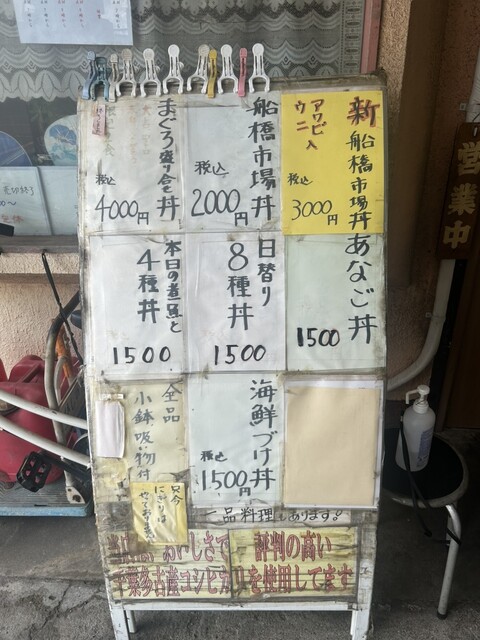 新船橋市場丼
アワビ入
ウニ
税込
3000円
船橋市場丼
税込
2000円
まぐろ盛り合せ丼
税込
4000円
あなご丼
1500
日替り
8種丼
1500
本日の煮魚と
4種丼
1500
海鮮づけ丼
税込
1,500円
全品
小鉢吸い物付
只今
にぎりは
やっておりません
一品料理もあります。
おいしさで評判の高い
千葉多古産コシヒカリを使用してます
営業中